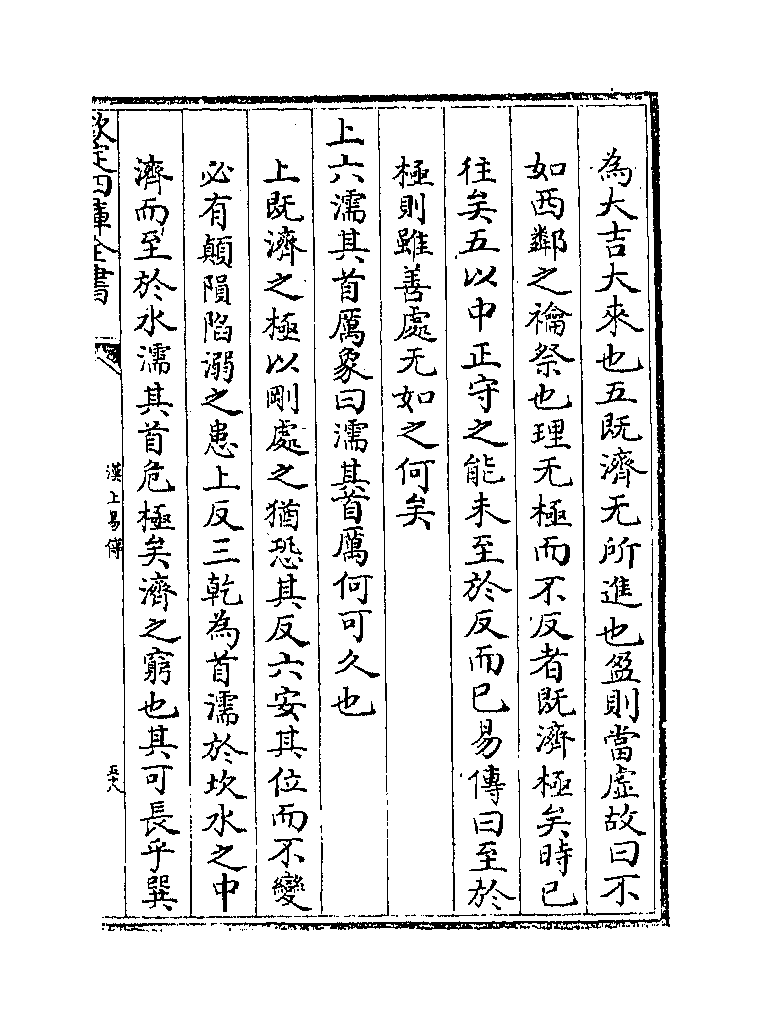 為大吉大來也五既濟无所進也盈則當虛故曰不
如西鄰之禴祭也理无極而不反者既濟極矣時已
往矣五以中正守之能未至於反而已易傳曰至於
極則雖善處无如之何矣
上六濡其首厲象曰濡其首厲何可久也
上既濟之極以剛處之猶恐其反六安其位而不變
必有顛隕陷溺之患上反三乾為首濡於坎水之中
濟而至於水濡其首危極矣濟之窮也其可長乎巽
欽定四庫全書
漢上易傳
五十八